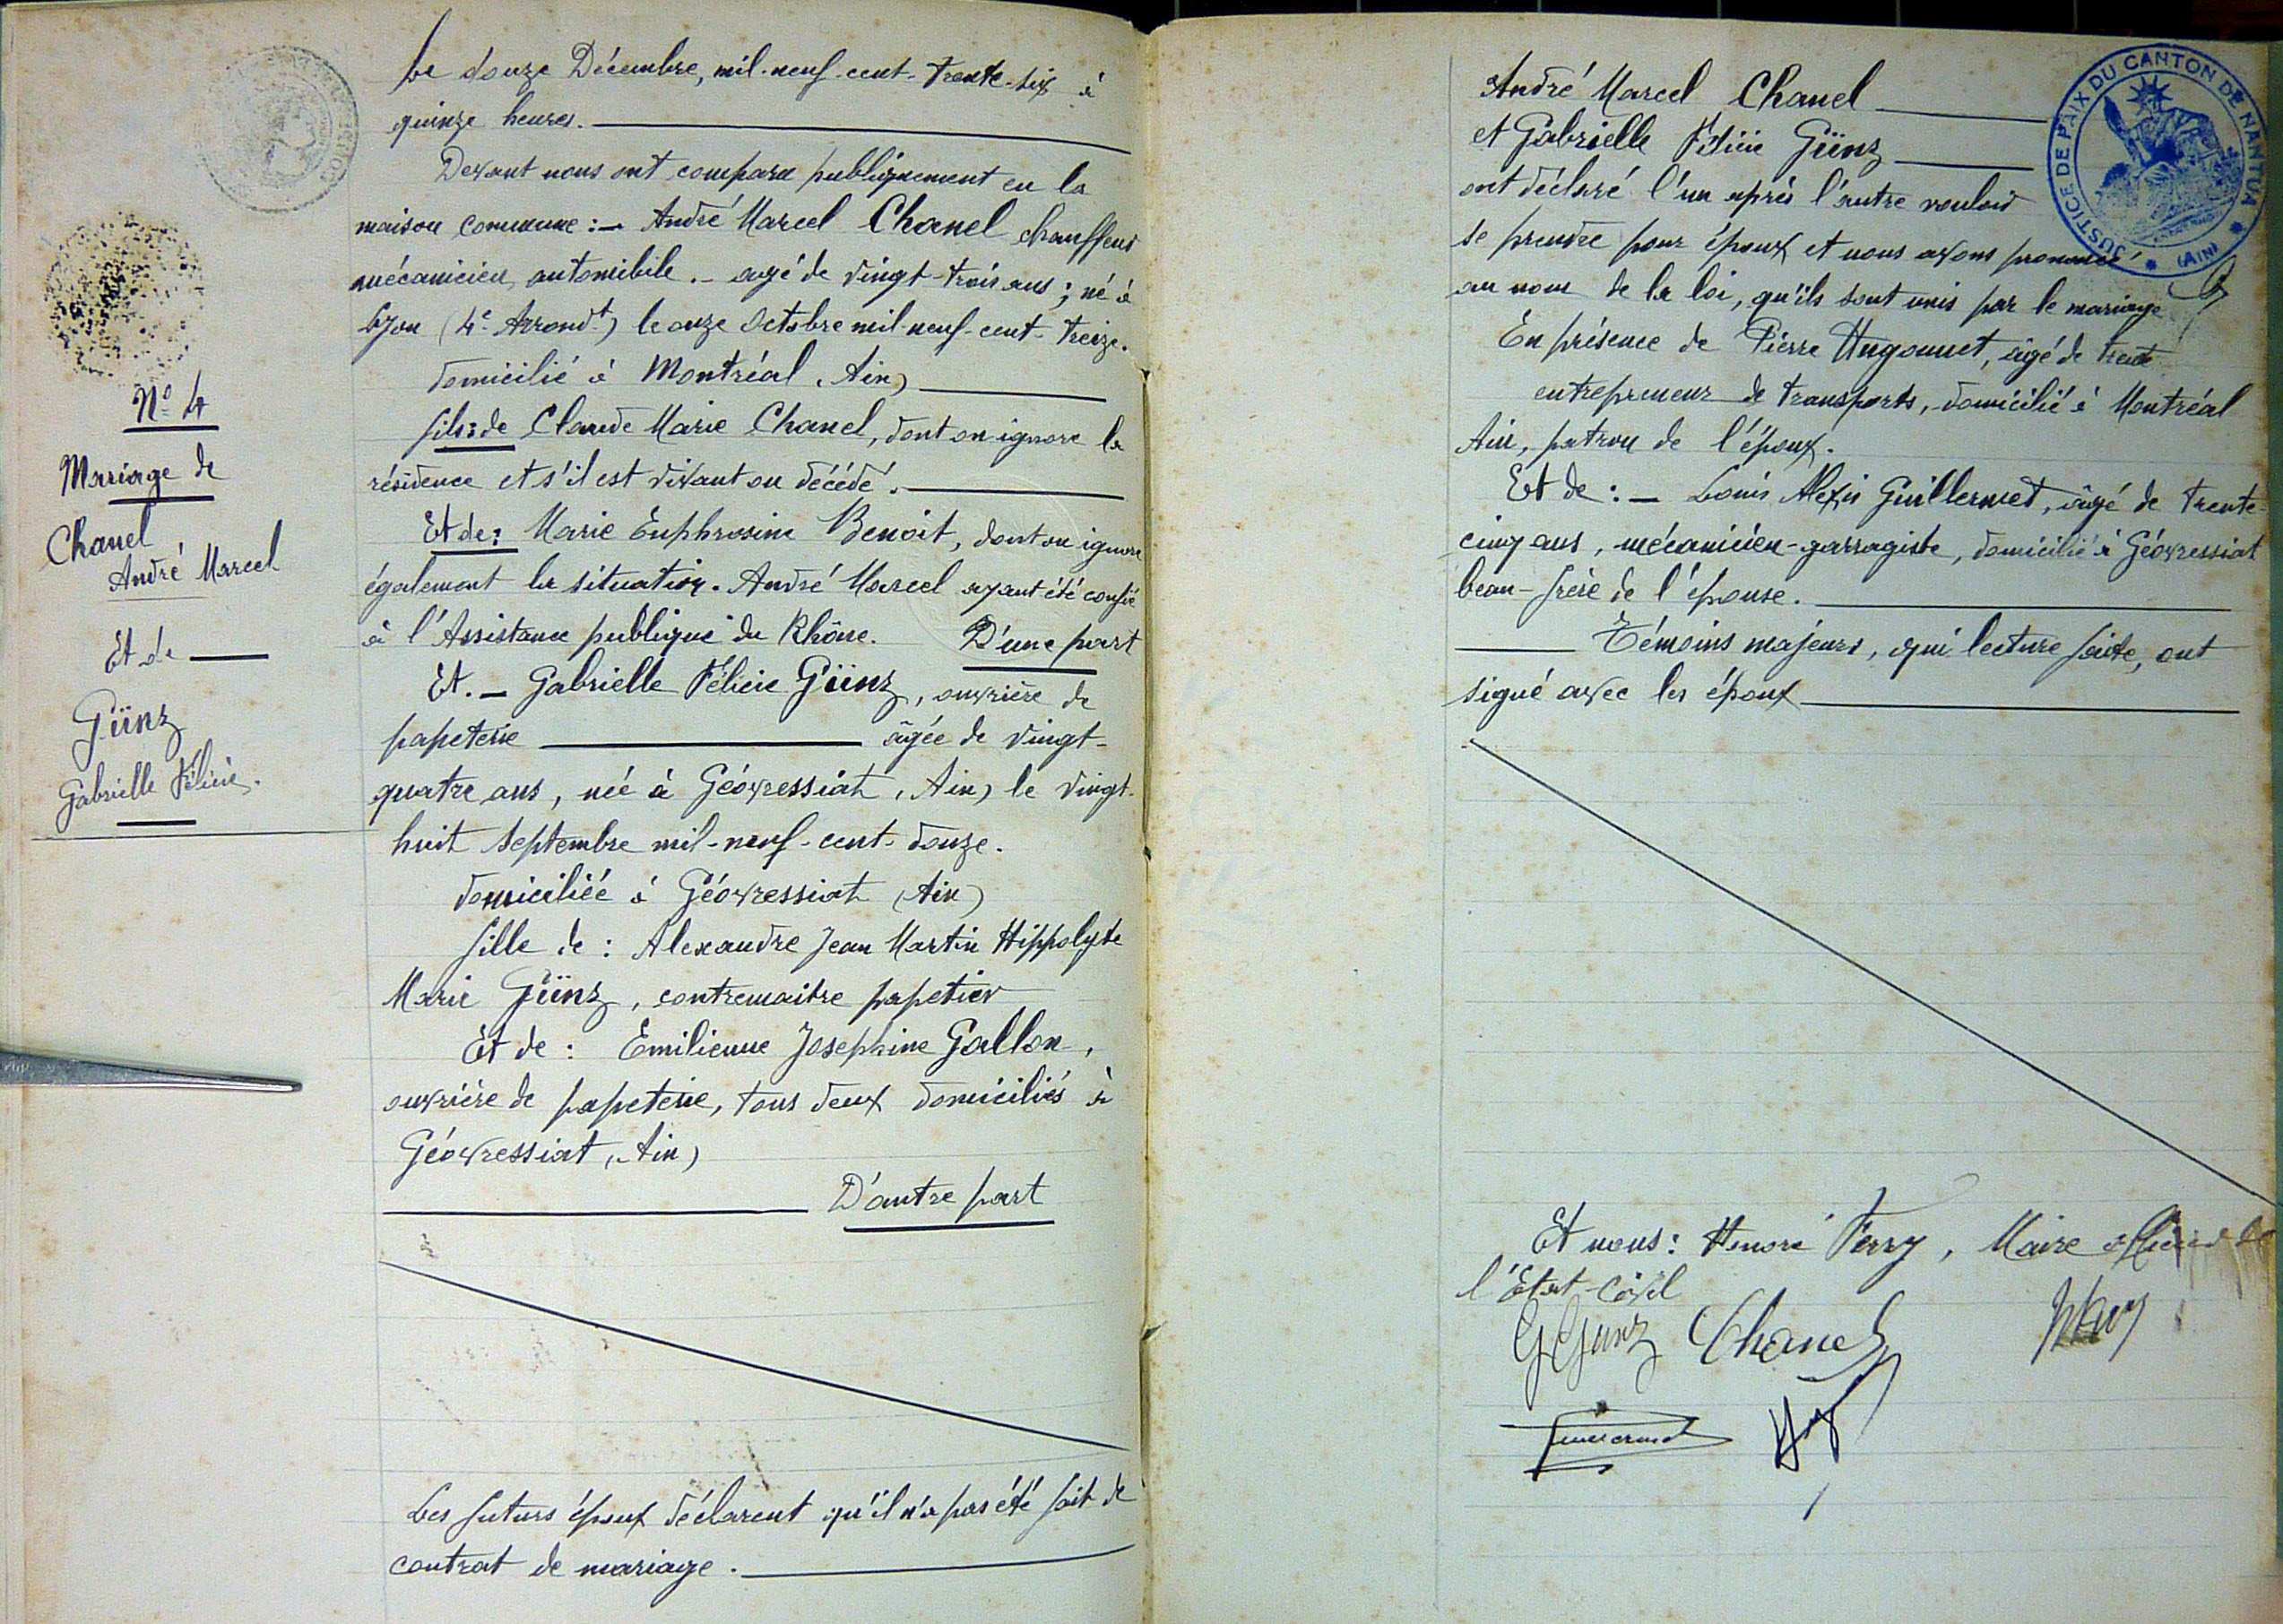 Le douze Décembre, mil-neuf-cent-trente-six à
quinze heures.
Devant nous ont comparu publiquement en la
maison commune :- André Marcel Chanel chauffeur
mécanicien automibile .- agé de vingt-trois ans ; né à
Lyon (4e Arrondt) le onze Octobre mil-neuf-cent-treize.
domicilié à Montréal (Ain)
fils : de Claude Marie Chanel, dont on ignore la
résidence et s'il est vivant ou décédé.
Et de : Marie Euphrosine Benoit, dont on ignore
également la situation. André Marcel ayant été confié
à l'Assistance publique du Rhône. D'une part
Et. - Gabrielle Félicie Günz, ouvrière de
papeterie âgée de vingt-
quatre ans, née à Géovressiat (Ain) le vingt-
huit septembre mil-neuf-cent-douze.
domiciliée à Géovressiat (Ain)
fille de : Alexandre Jean Martin Hippolyte
Marie Günz, contremaitre papetier
Et de : Emilienne Josephine Gallon,
ouvrière de papeterie, tous deux domiciliés à
Géovressiat (Ain)
D'autre part
Les futurs époux déclarent qu'il n'a pas été fait de
contrat de mariage.
No 4
Mariage de
Chanel
André Marcel
Et de
Günz
Gabrielle Félicie.
André Marcel Chanel
et Gabrielle Félicie Günz
ont déclaré l'un après l'autre vouloir
se prendre pour époux et nous avons prononcé
au nom de la loi, qu'ils sont unis par le mariage
En présence de Pierre Hugonnet, âgé de trente
entrepreneur de transports, domicilié à Montréal
Ain, patron de l'époux.
Et de : - Louis Alexis Guillermet, âgé de trente-
cinq ans, mécanicien-garragiste, domicilié à Géovressiat
beau-frère de l'épouse.
Témoins majeurs, qui lecture faite, ont
signé avec les époux
Et nous : Honoré Ferry, Maire officier de
l'État-Civil
G Gunz Chanel
Guillermet
JUSTICE DE PAIX DU CANTON DE NANTUA
(AIN)